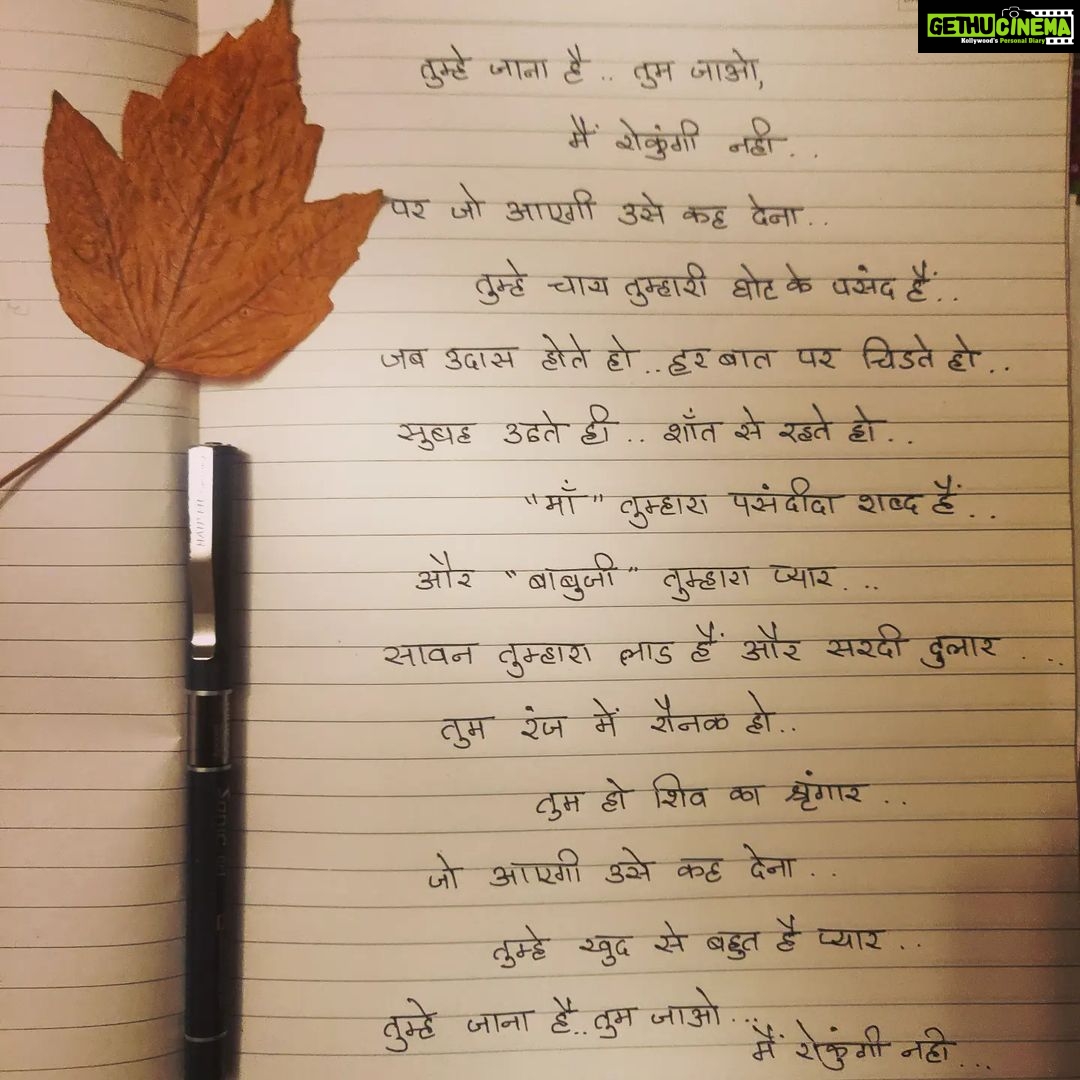 GETHUCINEMA
Kollywood's Personal Diary
तुम्हे जाना है.. तुम जाओ,
मैं रोकुंगी नही..
पर जो आएगी उसे कह देना..
तुम्हे चाय तुम्हारी घोट के पसंद हैं..
जब उदास होते हो..हर बात पर चिडते हो..
सुबह उठते ही.. शाँत से रहते हो..
"माँ" तुम्हारा पसंदीदा शब्द हैं..
और "बाबुजी" तुम्हारा प्यार...
सावन तुम्हारा लाड हैं और सरदी दुलार ...
तुम रंज में रौनक हो..
तुम हो शिव का श्रृंगार..
जो आएगी उसे कह देना..
तुम्हे खुद से बहुत है प्यार..
तुम्हे जाना है..तुम जाओ...
मैं रोकुंगी नही...